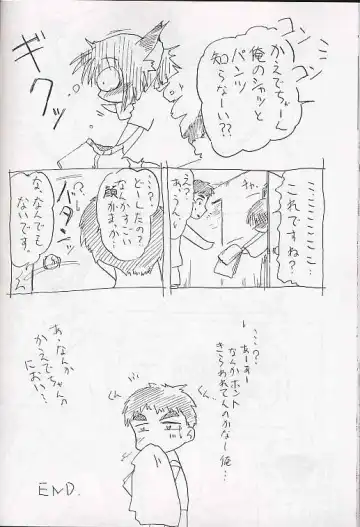 コンコン
かえでちゃーん
俺のシャツと
パンツ
知らなーい??
ギクッ
ミミミミミミ…
これですね?
え?
あ、うん…
…?
どーしたの?
なんかすごい
顔がまっか…
バタンッ
な、なんでも
ないです。
…?
あーあー
なんかホント
きらわれてんのかなー俺…
くん
くん
あ、なんか
かえでちゃんの
におい…
END.